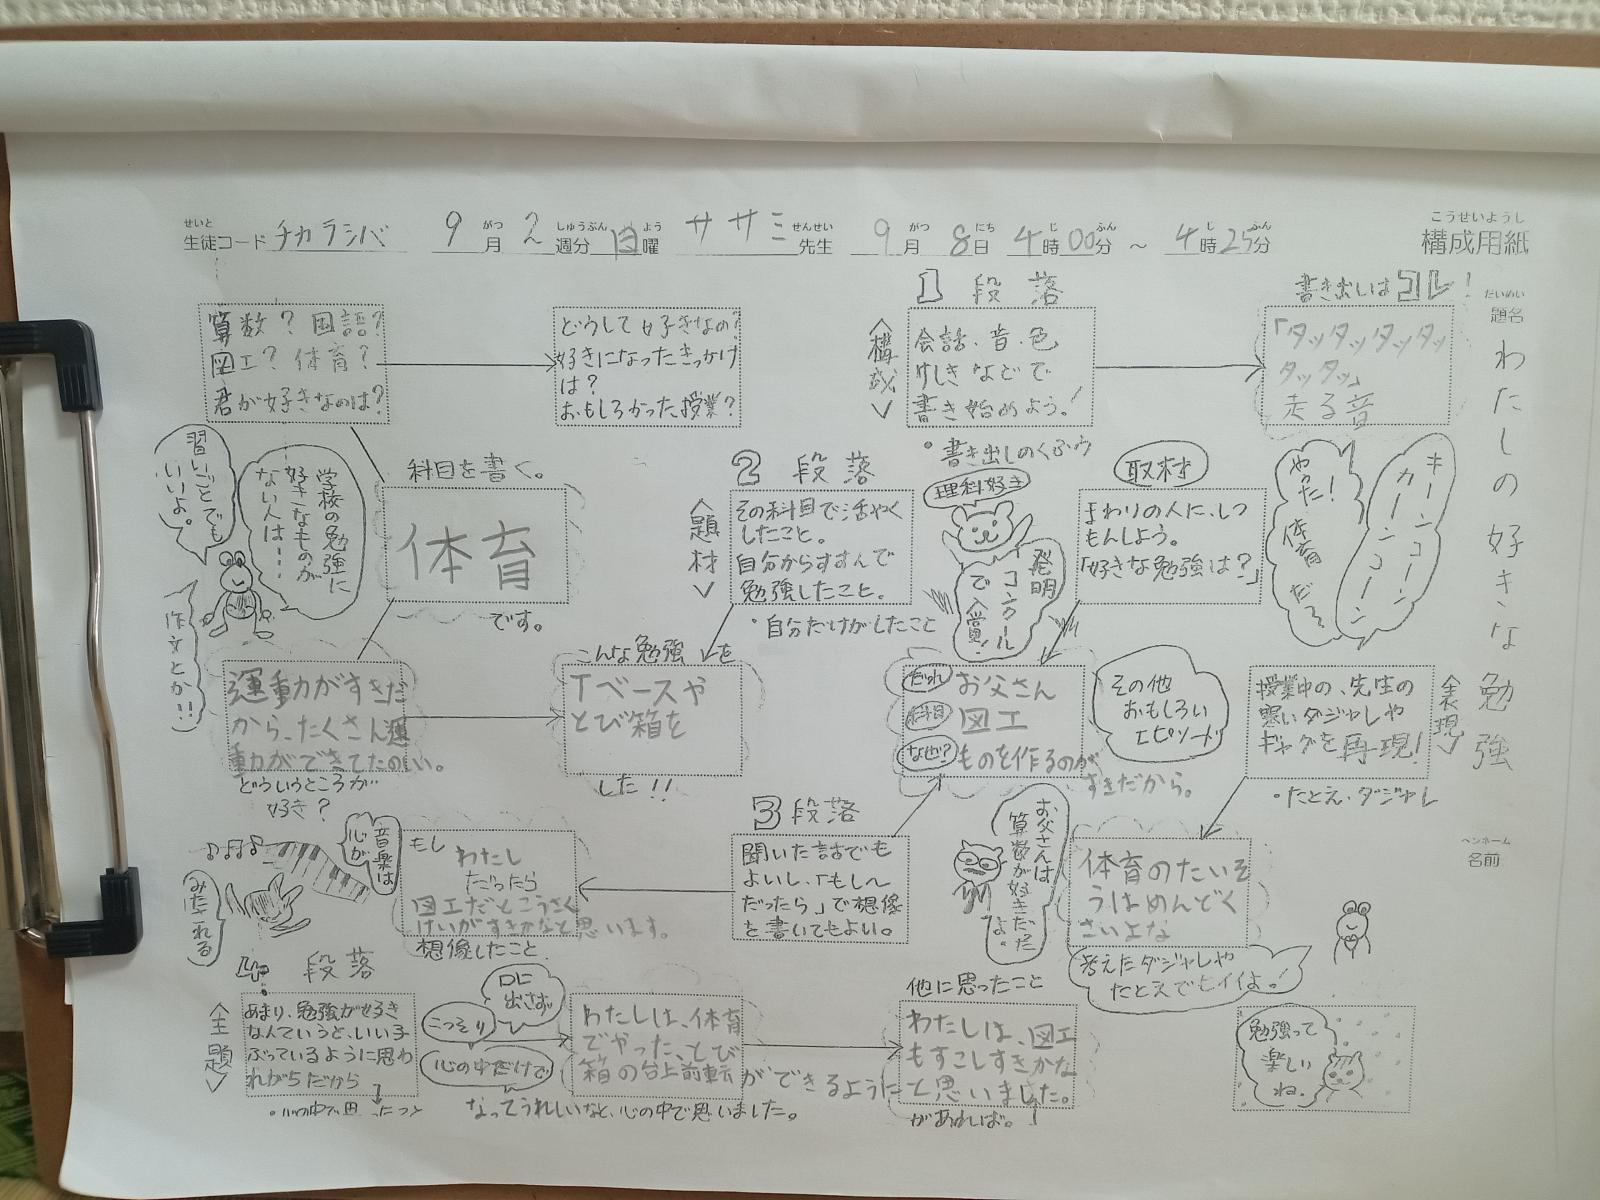 せいと
生徒コード チカラシバ 9月 2週分 日曜 ササミ先生 9月 8日 4時00分 ～ 4時25分
がつ しゅうぶん よう せんせい がつ にち じ ふん じ ふん
こうせいようし
構成用紙
だいめい
題名
わたしの好きな勉強
ペンネーム
名前
算数？国語？
図工？体育？
君が好きなのは？
どうして好きなの？
好きになったきっかけ
は？
おもしろかった授業？
1段落
＜構成＞
会話、音、色
けしきなどで
書き始めよう！
・書き出しのくふう
書き出しはコレ！
「タッタッタッタッ
タッタッ」
走る音
キーンコーン
カーンコーン
やった！
体育だ～
科目を書く。
体育
です。
学校の勉強に
好きなものが
ない人は……
習いごとでも
いいよ。
作文とか!!
運動がすきだ
から、たくさん運
動ができてたのしい。
どういうところが
好き？
2段落
＜題材＞
その科目で活やく
したこと。
自分からすすんで
勉強したこと。
・自分だけがしたこと
こんな勉強を
Tベースや
とび箱を
した!!
理科好き
発明
コンクール
で入賞！
取材
まわりの人に、しつ
もんしよう。
「好きな勉強は？」
だれ お父さん
科目 図工
なぜ？ ものを作るのが
すきだから。
その他
おもしろい
エピソード
＜表現＞
授業中の、先生の
寒いダジャレや
ギャグを再現！
・たとえ、ダジャレ
体育のたいそ
うはめんどく
さいよな
考えたダジャレや
たとえでモイイよ！
3段落
聞いた話でも
よいし、「もし～
だったら」で想像
を書いてもよい。
お父さんは
算数が好きだった
よ。
もし
わたし
だったら
図工だとこうさく
けいがすきかなと思います。
想像したこと
音楽は
心が
みたされる
4段落
＜主題＞
あまり、勉強が好き
なんていうと、いい子
ぶっているように思わ
れがちだから
・心の中で思ったこと
口に
出さず
こっそり
心の中だけで
わたしは、体育
でやった、とび
箱の台上前転ができるように
なってうれしいなと、心の中で思いました。
他に思ったこと
わたしは、図工
もすこしすきかな
と思いました。
があれば。
勉強って
楽しい
ね。